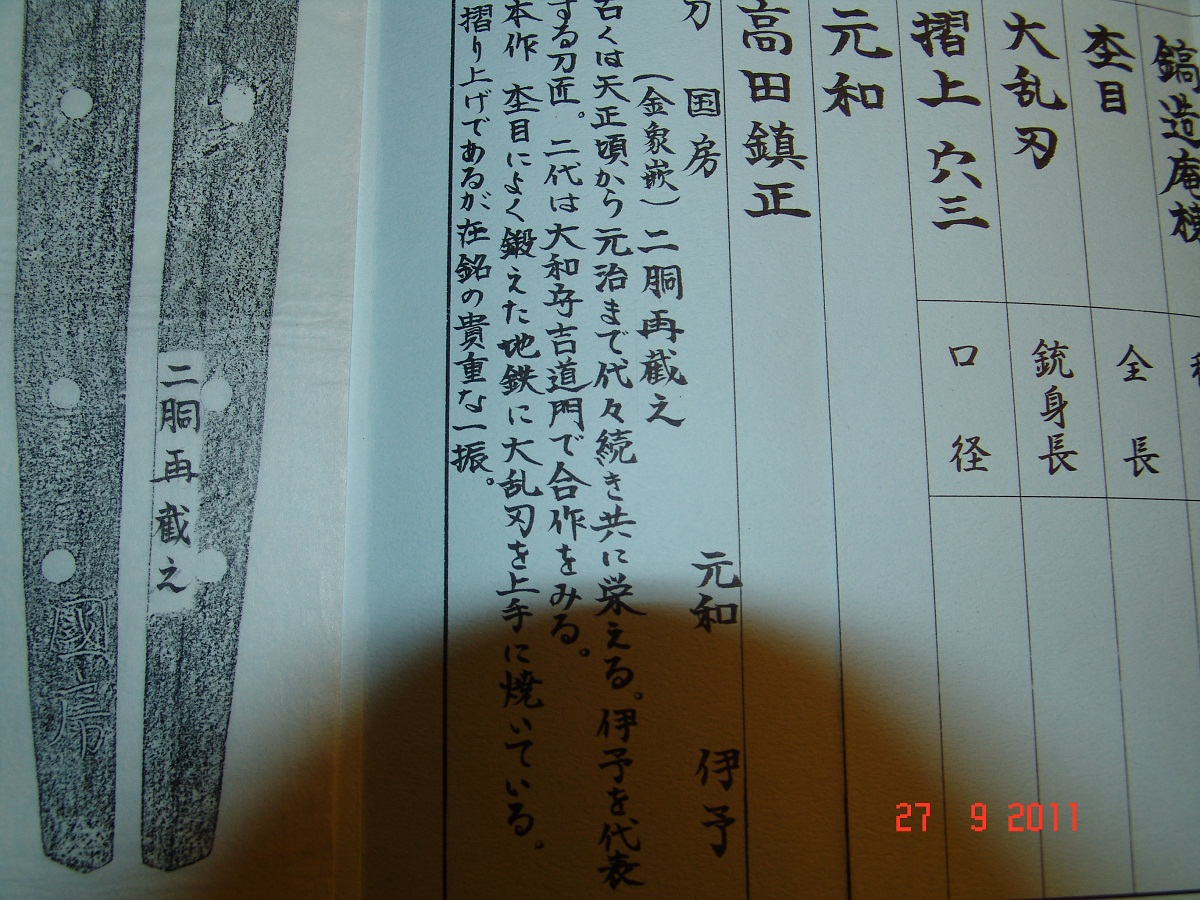 鎬造庵棟
杢目
大乱刃
摺上 穴三
元和
高田鎮正
全長
銃身長
口径
刀 国房 元和 伊予
(金象嵌) 二胴再截え
古くは天正頃から元治まで代々続き共に栄える。伊予を代表
する刀匠。二代は大和守吉道門で合作をみる。
本作 杢目によく鍛えた地鉄に大乱刃を上手に焼いている。
摺り上げであるが在銘の貴重な一振。
二胴再截え
國房
27 9 2011